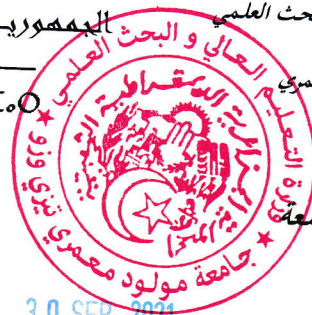 الجمهوريـ
حث العلمي
مري
معة
وزارة التعليم العالي و البحث العلمي
جامعة مولود معمري تيزي وزو
الجمهورية الجزائرية الديمقراطية الشعبية
30 SEP 2021